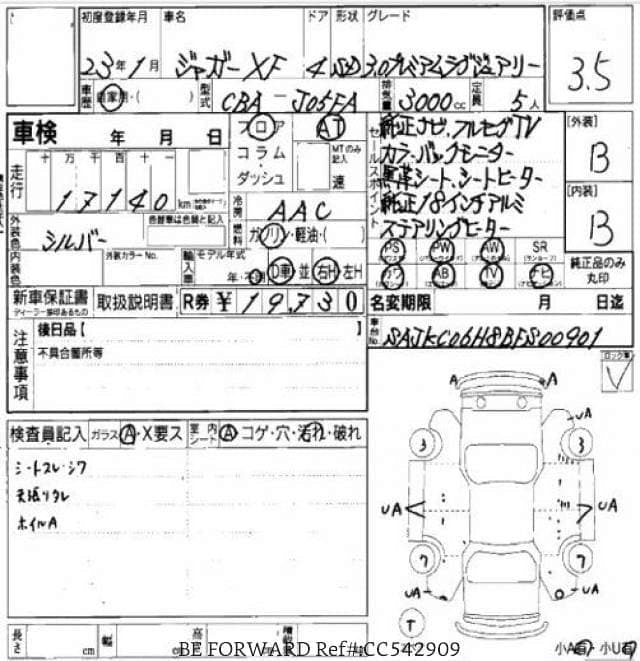 初度登録年月 車名 ドア 形状 グレード 評価点
23年1月 ジャガー XF 4 SD 3.0プレミアムラグジュアリー 3.5
車歴 自家用・( ) 型式 CBA - J05FA 排気量 3000cc 定員 5人
車検 年 月 日 フロア AT
セールスポイント
純正ナビ.フルセグTV
カラーバックモニター
黒革シート、シートヒーター
純正18インチアルミ
ステアリングヒーター
[外装]
B
[内装]
B
コラム・ダッシュ MTのみ記入 速
走行 十 万 千 百 十 一
17140 km
冷房 AAC
外装色 シルバー 色替車は色調と記入
燃料 ガソリン・軽油・( )
内装色 外装カラーNo. 輸入車 モデル年式
年・不明 D車 並 右H 左H
PS PW AW SR
カワ AB TV ナビ
純正品のみ丸印
新車保証書 取扱説明書 R券 ¥19,730
ディーラー捺印あるもの
名変期限 月 日迄
注意事項 後日品【 】
不具合箇所等
車台No. SAJKC06H8BFS00901
検査員記入 ガラス A・X要ス 室内シート A コゲ・穴・汚れ・破れ
シートスレ・シワ
天張りタレ
ホイルA
A A
uA
3 3
uA uA
7 7
uA uA
T
長さ cm 幅 cm 高
BE FORWARD Ref#:CC542909
小A有 小U有